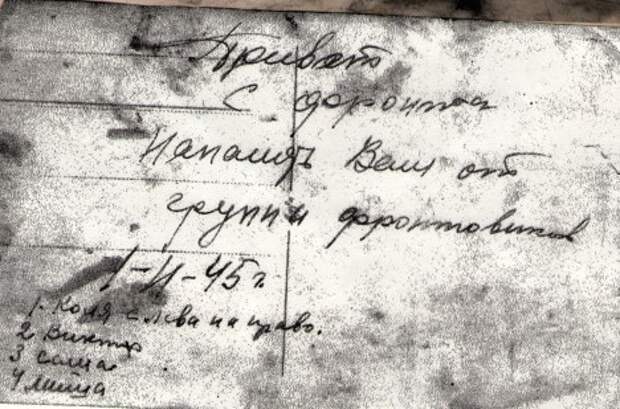 Привет
с фронта
Напамять Вам от
группы фронтовиков
1-II-45 г
1. Коля слева на право.
2 Виктор
3 саша
4 миша